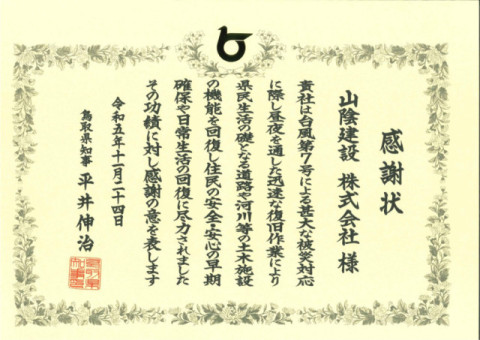 感謝状
山陰建設 株式会社 様
貴社は台風第7号による甚大な被災対応
に際し昼夜を通した迅速な復旧作業により
県民生活の礎となる道路や河川等の土木施設
の機能を回復し住民の安全・安心の早期
確保や日常生活の回復に尽力されました
その功績に対し感謝の意を表します
令和五年十一月二十四日
鳥取県知事 平井伸治